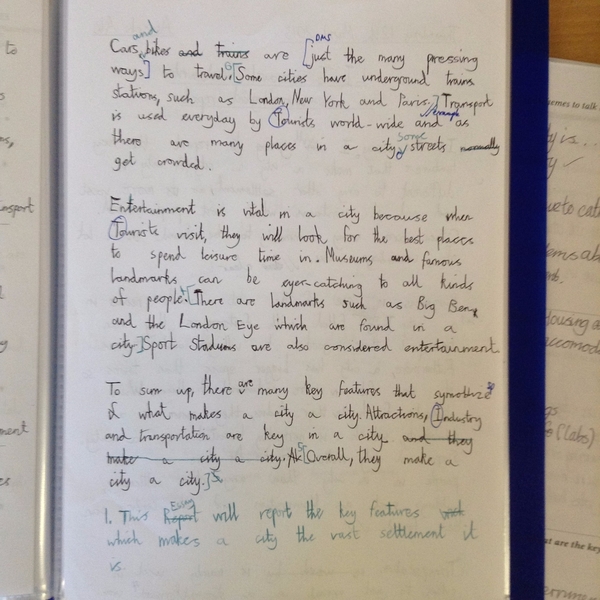 and
Cars, bikes and trains are [just the many pressing DMS
ways] to travel. [Some cities have underground trains
stations, such as London, New York and Paris.] Transport
is used everyday by Tourists world-wide and as example
there are many places in a city, some streets normally
get crowded.
Entertainment is vital in a city because when
Tourists visit, they will look for the best places
to spend leisure time in. Museums and famous
landmarks can be eyer-catching to all kinds
of people. [There are landmarks such as Big Ben,
and the London Eye which are found in a
city.] Sport Stadiums are also considered entertainment.
To sum up, there are many key features that symothize
of what makes a city a city. Attractions, Industry
and transportation are key in a city and they
make a city a city. [Overall, they make a
city a city.]
1. This Report Essay will report the key features
which makes a city the vast settlement it
is.
to
nsport
ment
emes to talk
ty is...
ty
ems ab
Housing a
ccomoda
gs
(labs)
at are the key